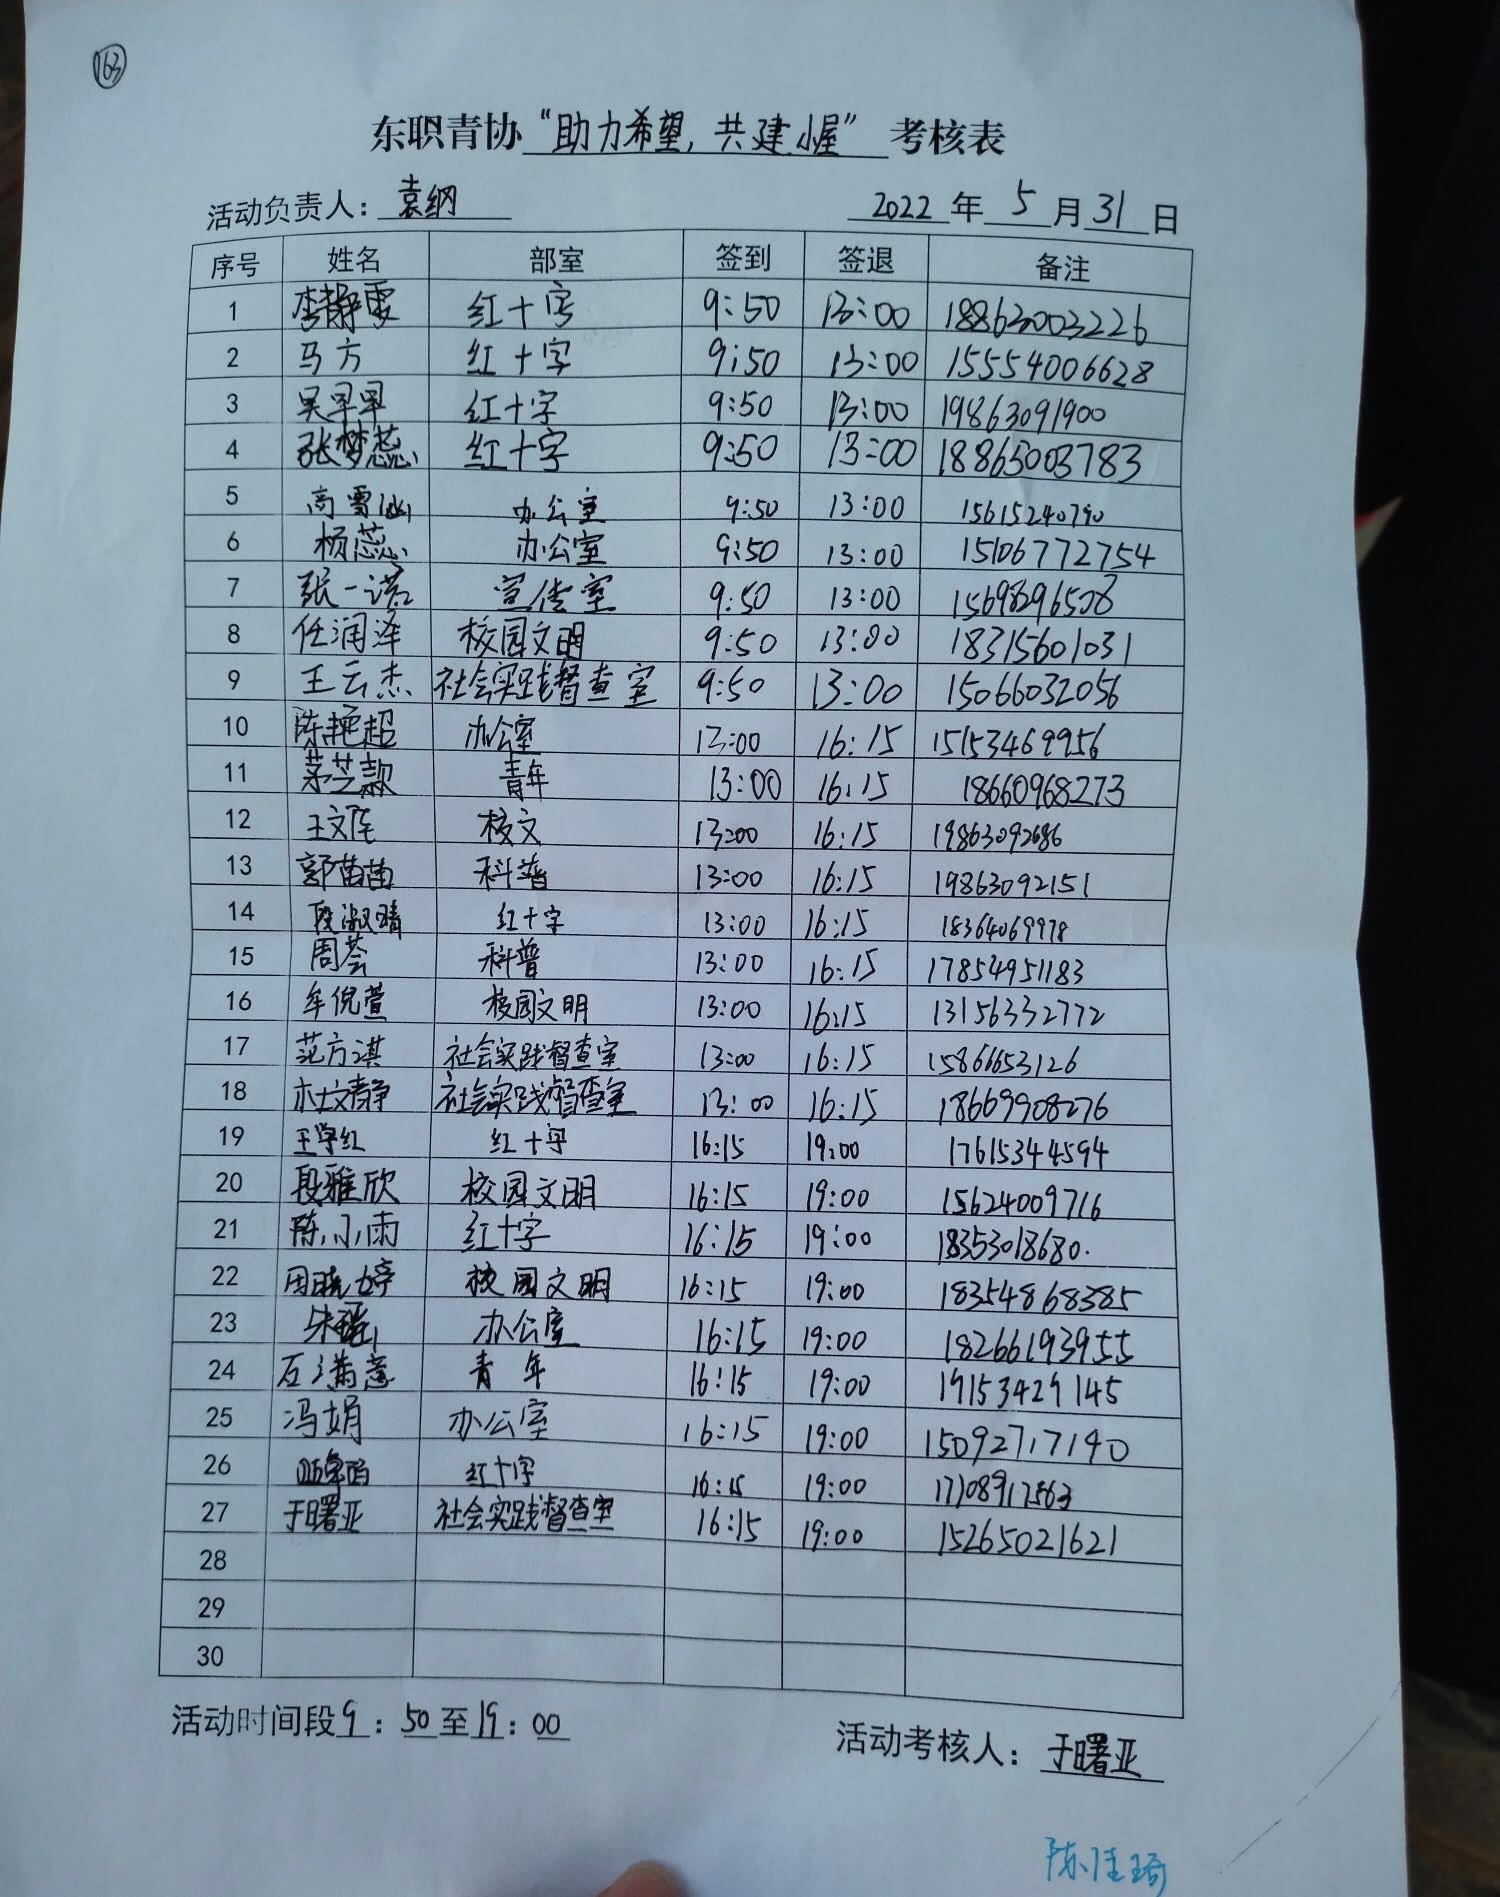 163
东职青协“助力希望，共建小屋”考核表
活动负责人：袁纲 2022年5月31日
序号 姓名 部室 签到 签退 备注
1 李静雯 红十字 9:50 13:00 18863003226
2 马方 红十字 9:50 13:00 15554006628
3 吴早早 红十字 9:50 13:00 19863091900
4 张梦蕊 红十字 9:50 13:00 18865003783
5 高雪 办公室 9:50 13:00 15615240790
6 杨蕊 办公室 9:50 13:00 15106772754
7 张一诺 宣传室 9:50 13:00 15698296508
8 任润泽 校园文明 9:50 13:00 18315601031
9 王云杰 社会实践督查室 9:50 13:00 15066032056
10 陈艳超 办公室 13:00 16:15 15153469956
11 茅芝款 青年 13:00 16:15 18660968273
12 王文 校文 13:00 16:15 19863092686
13 郭苗苗 科普 13:00 16:15 19863092151
14 段淑晴 红十字 13:00 16:15 18364069978
15 周荟 科普 13:00 16:15 17854951183
16 牟倪萱 校园文明 13:00 16:15 13156332772
17 范方淇 社会实践督查室 13:00 16:15 15866653126
18 杜文静 社会实践督查室 13:00 16:15 18669908276
19 王学红 红十字 16:15 19:00 17615344594
20 段雅欣 校园文明 16:15 19:00 15624009716
21 陈小雨 红十字 16:15 19:00 18353018680.
22 田晓婷 校园文明 16:15 19:00 18354868385
23 朱瑶 办公室 16:15 19:00 18266193955
24 石满意 青年 16:15 19:00 19153429145
25 冯娟 办公室 16:15 19:00 15092717190
26 红十字 16:15 19:00
27 于曙亚 社会实践督查室 16:15 19:00 15265021621
28
29
30
活动时间段9：50至19：00
活动考核人：于曙亚
陈佳琦